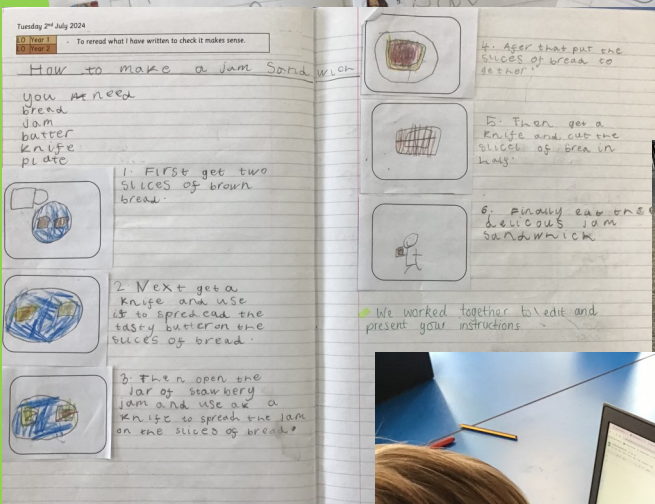 Tuesday 2nd July 2024
LO Year 1
LO Year 2
- To reread what I have written to check it makes sense.
How to make a jam Sandwich
you need
bread
Jam
butter
knife
plate
1. First get two
slices of brown
bread.
2 Next get a
knife and use
it to spredead the
tasty butter on the
slices of bread.
3. Then open the
Jar of stawbery
jam and use a
knife to spreath the Jam
on the slices of bread.
4. Afer that put the
slices of bread to
gether.
5. Then get a
knife and cut the
slices of brea in
half.
6. Finally eat the
delicous jam
sandwhick
We worked together to edit and
present your instructions.